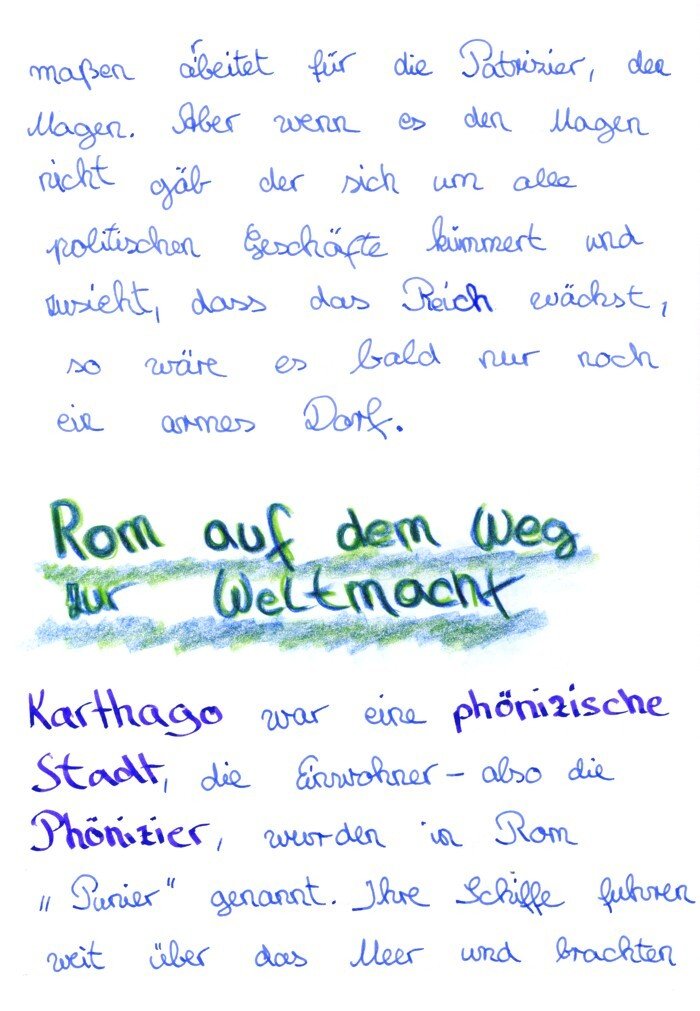 maßen arbeitet für die Patrizier, den
Magen. Aber wenn es den Magen
nicht gäb der sich um alle
politischen Geschäfte kümmert und
zusieht, dass das Reich wächst,
so wäre es bald nur noch
ein armes Dorf.
Rom auf dem Weg
zur Weltmacht
Karthago war eine phönizische
Stadt, die Einwohner – also die
Phönizier, wurden in Rom
„Punier“ genannt. Ihre Schiffe fuhren
weit über das Meer und brachten